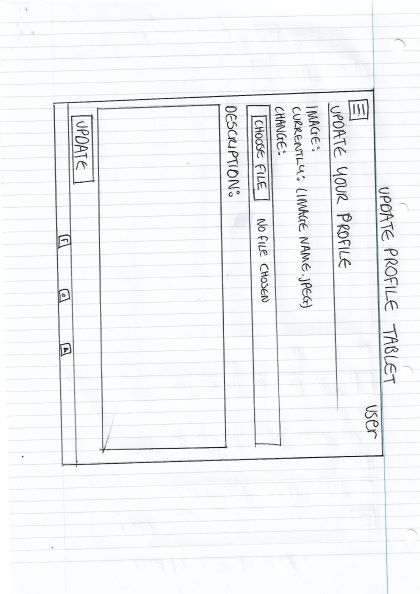 UPDATE PROFILE TABLET
user
UPDATE YOUR PROFILE
IMAGE:
CURRENTLY: (IMAGE NAME.JPEG)
CHANGE:
CHOOSE FILE NO FILE CHOSEN
DESCRIPTION:
UPDATE